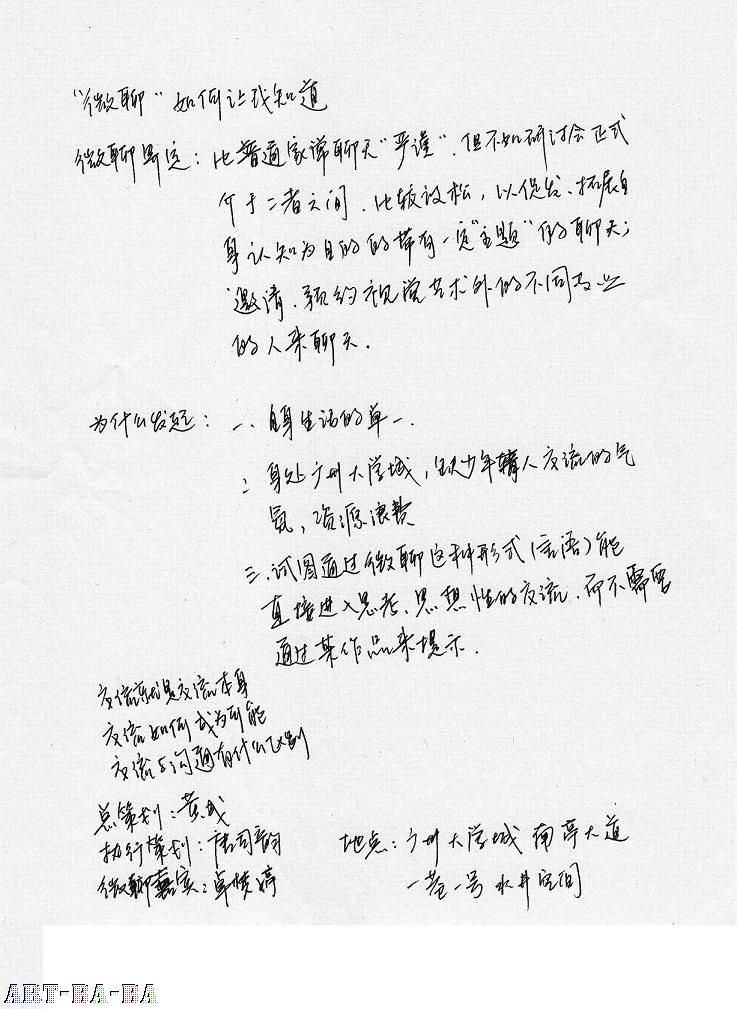 "微聊"如何让我知道
微聊界定：比普通家常聊天"严谨"，但不如研讨会正式
介于二者之间，比较放松，以促发、拓展自
身认知为目的的带有一定"主题"的聊天；
邀请、预约视觉艺术外的不同专业
的人来聊天．
为什么发起：一、自身生活的单一．
二 身处广州大学城，缺少年轻人交流的气
氛，资源浪费
三．试图通过微聊这种形式（言语）能
直接进入思考、思想性的交流．而不需要
通过某作品来提示．
交流就是交流本身
交流如何成为可能
交流与沟通有什么区别
总策划：黄成
执行策划：唐司韵
微聊嘉宾：卓悛婷
地点：广州大学城 南亭大道
一巷一号 水井空间
ART-BA-BA